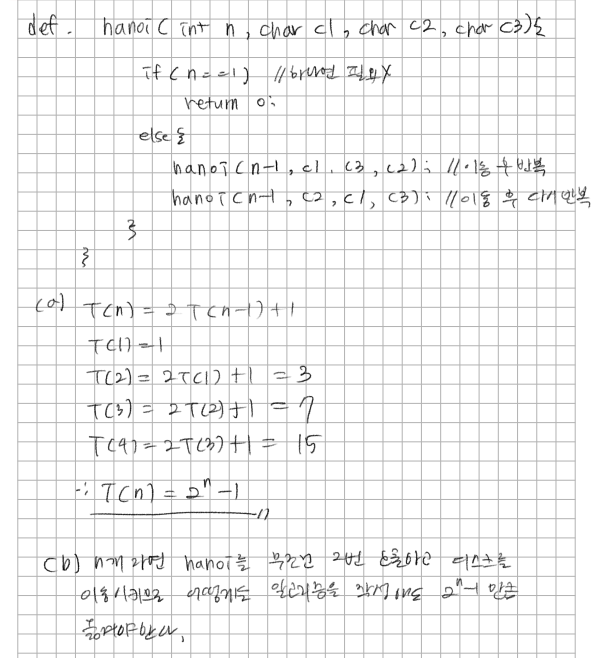 def. hanoi ( int n, char c1, char c2, char c3){
if (n==1) // 하나면 필요X
return 0;
else {
hanoi (n-1, c1, c3, c2); // 이동 후 반복
hanoi (n-1, c2, c1, c3); // 이동 후 다시 반복
}
}
(a) T(n) = 2T(n-1)+1
T(1)=1
T(2)= 2T(1)+1 = 3
T(3)= 2T(2)+1 = 7
T(4)= 2T(3)+1 = 15
∴ T(n) = 2ⁿ-1
(b) n개 라면 hanoi를 무조건 2번 호출하고 디스크를
이동시키므로 어떻게든 알고리즘을 작성해도 2ⁿ-1 만큼
옮겨야한다.